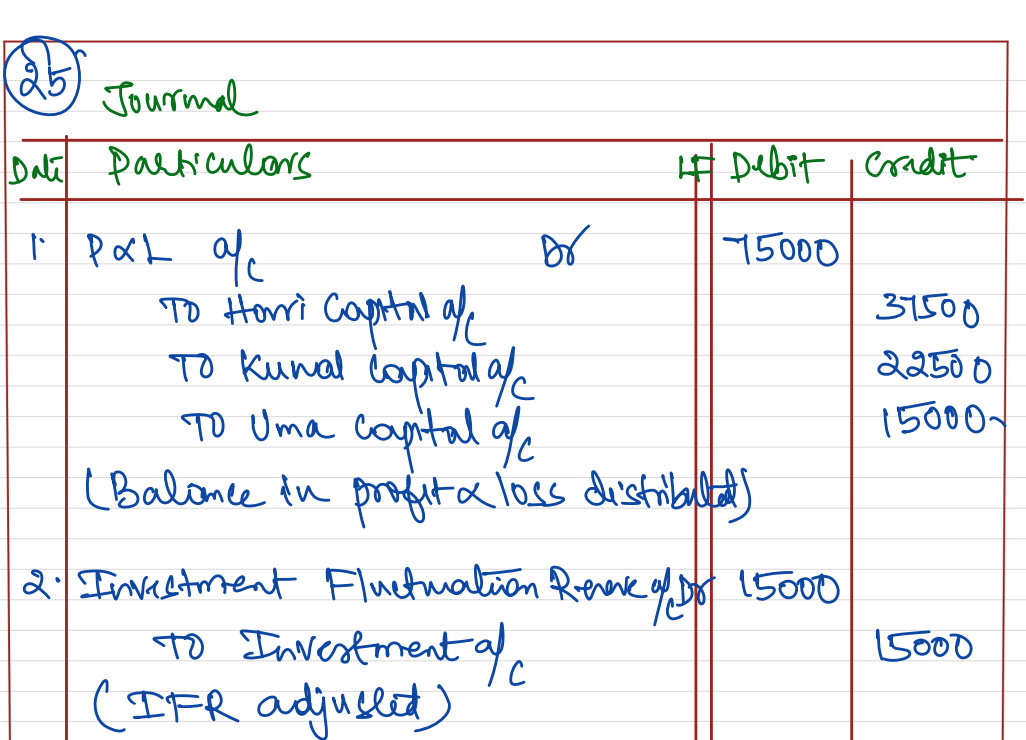 25
Journal
Date Particulars LF Debit Credit
1. P&L a/c Dr 75000
To Hari Capital a/c 37500
To Kunal Capital a/c 22500
To Uma Capital a/c 15000
(Balance in profit & loss distributed)
2. Investment Fluctuation Reserve a/c Dr 15000
To Investment a/c 15000
(IFR adjusted)